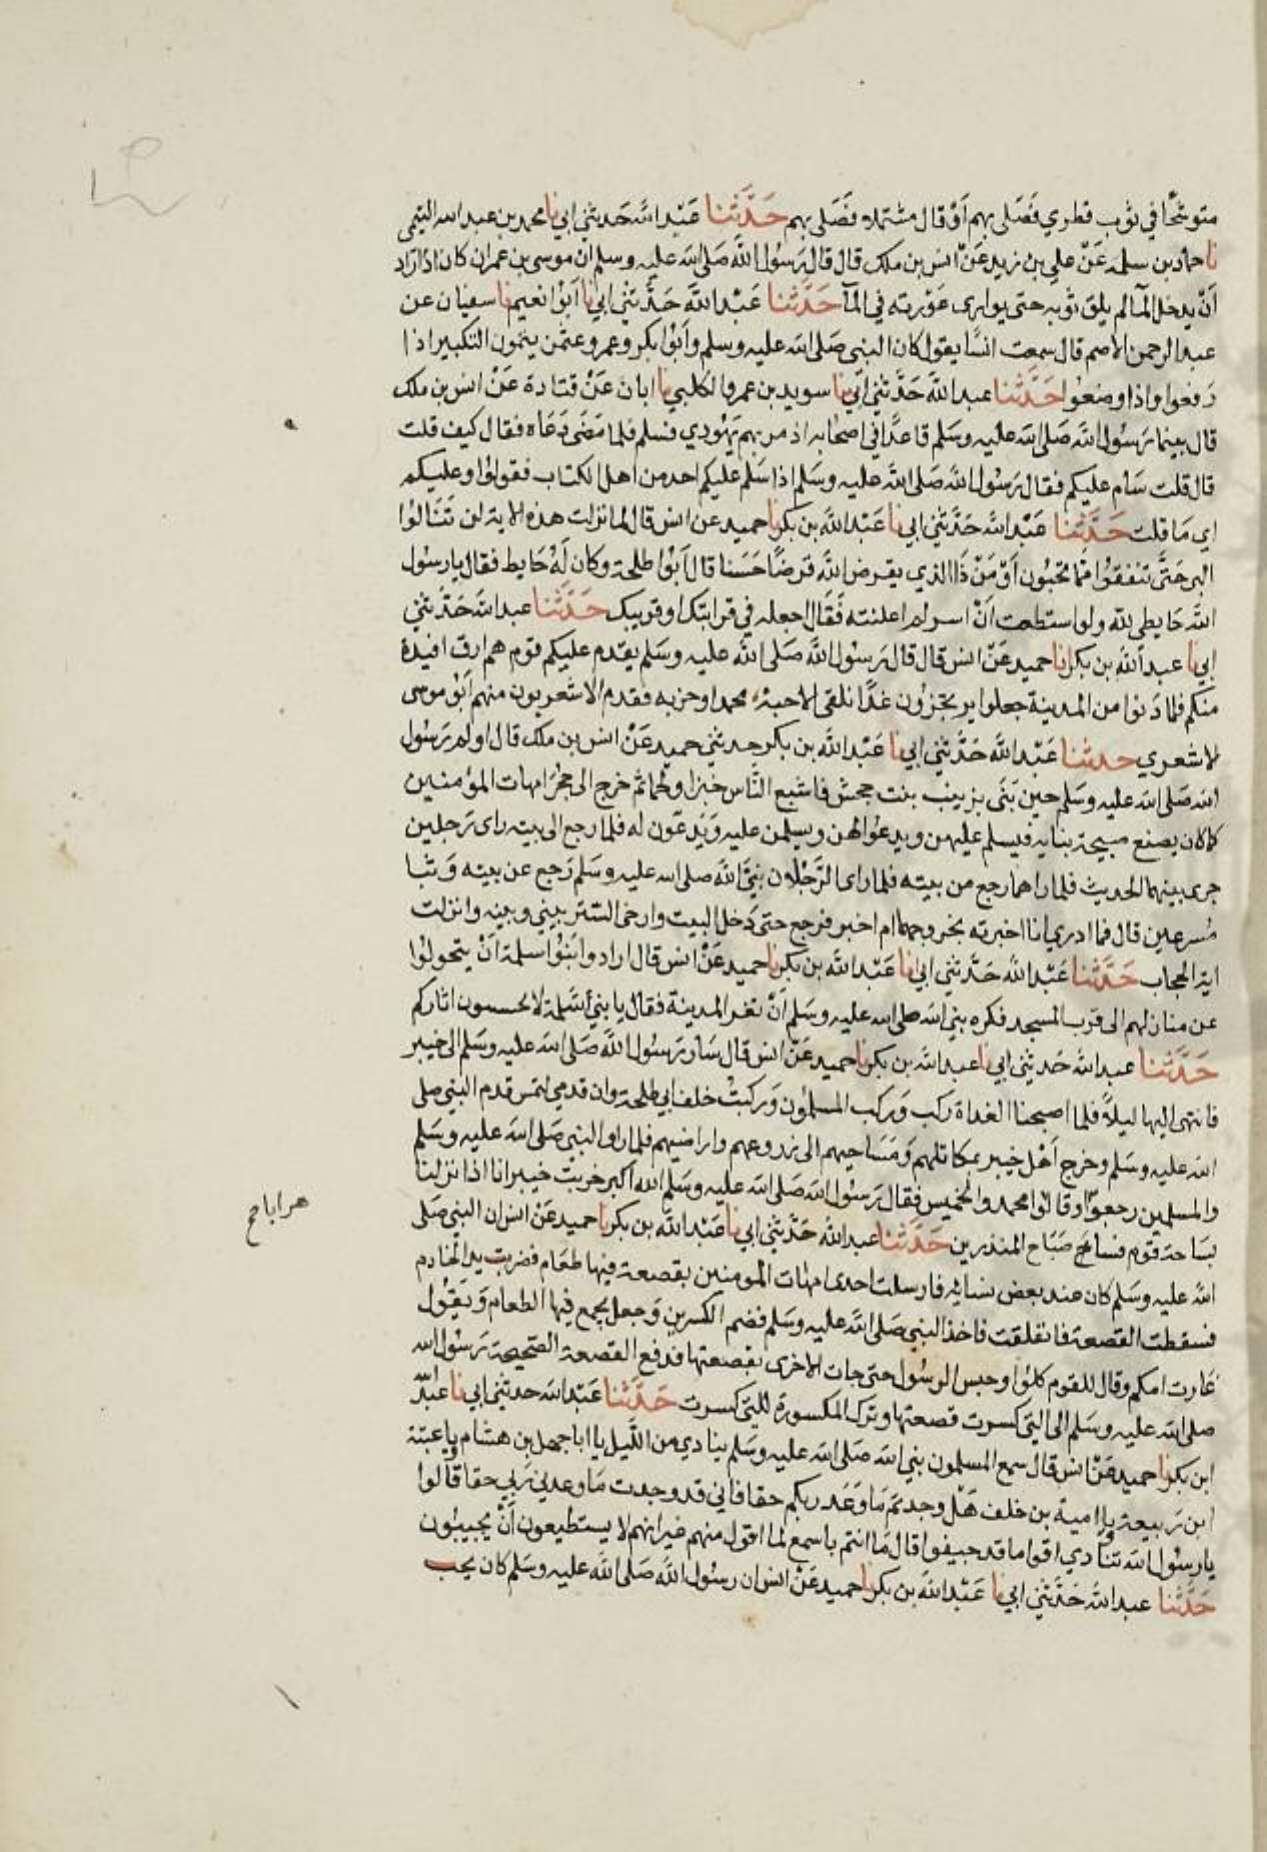 متوشحًا في ثوب قطري فَصَلى بهم اَوْ قال مشتملا فصَلى بهم حَدَّثنا عَبْد الله حَدثني ابي نا محمد بن عبد الله التيمي
نا حماد بن سلمة عَنْ علي بن زيد عَنْ انس بن ملك قال قال رَسُول الله صَلى الله عليه وسلم ان موسى بن عمران كان اذا اَرَاد
اَنْ يدخل المآ لم يلق ثوبه حتى يوارى عَوْرته في المآ حَدَّثنا عَبْد الله حَدَّثني ابي نا اَبوُا نعيم نا سفيان عن
عبد الرحمن الاصم قال سمعت انسًا يقول كان النبى صَلى الله عليه وسلم واَبوُا بكر وعمر وعثمن يتمون التكبير اذا
رَفعوا واذا وضعوُا حَدَّثنا عبد الله حَدَّثني ابَي نا سويد بن عمرو الكلبي نا ابان عَنْ قتادة عَنْ انس بن ملك
قال بينما رَسُول الله صَلى الله عليه وسَلم قاعدًا في اصحابه اذ مر بهم يَهُودي فسلم فلما مَضَى دَعَاه فقال كيف قلت
قال قلت سَام عليكم فقال رَسُول الله صَلى الله عليه وسَلم اذا سَلم عليكم احد من اهل الكتاب فقولوُا وعليكم
اي مَا قلت حَدَّثنا عَبْد الله حَدَّثني ابي نا عَبْد الله بن بكر نا حميد عن انس قال لما نزلت هذه الاية لن تَنَالوُا
البر حَتَّى تنفقوُا مِمَّا تحبُون اَوْ مَنْ ذَا الذي يقرض الله قرضًا حَسَنا قال اَبوُا طلحة وكان لَهُ حَايط فقال يارسُول
الله حَايطى لله ولو استطعت اَنْ اسره لم اعلنته فَقَال اجعله في قرابتك او قريبك حَدَّثنا عبد الله حَدَّثني
ابي نا عبد الله بن بكر انا حميد عَنْ انس قال قال رَسُول الله صَلى الله عليه وسَلم يقدم عليكم قوم هم ارق افيدة
منكم فلما دَنوا من المدينة جعلوا يرتجزون غدًا نلقى الاحبة محمدا وحزبه فقدم الاشعريون منهم اَبوُ موسى
لاشعري حدثنا عَبْد الله حَدَّثني ابي نا عَبْد الله بن بكر حدثني حميد عَنْ انس بن ملك قال اولم رَسُول
الله صَلى الله عليه وسَلم حين بَنَى بزينب بنت جحش فاشبع النَّاس خبزا ولحما ثم خرج الى حجُر امهات المؤمنين
كما كان يصنع صبيحة بنايه فيسلم عليهن ويدعوُا لهن ويسلمن عليه وَيَدعَون له فلما رجع الى بيته راى رَجلين
جرى بينهما الحديث فلما راهما رجع من بيته فلما راى الرَّجُلان نبىَّ الله صلى الله عليه وسَلم رَجع عن بيته وَثبا
مُسرعين قال فما ادري انا اخبرته بخروجهما ام اخبر فرجع حتى دَخل البيت وارخى الستر بيني وبينه وانزلت
اية الحجاب حَدَّثنا عَبْد الله حَدَّثني ابي نا عَبْد الله بن بكر نا حميد عَنْ انس قال ارادوا بنوُا سلمة اَنْ يتحولوُا
عن منازلهم الى قرب المسجد فكره نبي الله صلى الله عليه وسَلم اَنْ تعر المدينة فقال يا بني سَلمة الا تحسبون اثاركم
حَدَّثنا عبد الله حَدثني ابي نا عبد الله بن بكر نا حميد عَنْ انس قال سَار رَسُول الله صَلى الله عليه وسَلم الى خيبر
فانتهى اليها ليلاً فلما اصبحنا الغداة ركب وَركب المسلمُون وَركبتْ خلف ابي طلحة وان قدمي لتمس قدم النبي صلى
الله عليه وسَلم وخرج اَهْل خيبر بمكاتلهم وَمَسَاحيهم الى زروعهم واراضيهم فلما راوا النبي صَلى الله عليه وسَلم
والمسلمين رجعوا وقالوُا محمد والخميس فقال رَسُول الله صَلى الله عليه وسَلم الله اكبر خربت خيبر انا اذا نزلنا
بسَاحة قوم فسا صَبَاح المنذرين حَدَّثنا عبد الله حَدَّثني ابي نا عَبْد الله بن بكر نا حميد عَنْ انس ان النبي صَلى
الله عليه وسَلم كان عند بعض نسائه فارسلت احدى امهَات المومنين بقصعة فيها طعَام فضربت يد الخادم
فسقطت القصعة فانفلقت فاخذ النبي صَلى الله عليه وسَلم فضم الكسرين وَجعل يجمع فيها الطعام وَيَقوُل
غارت امكم وقال للقوم كلوُا وحبس الرسُول حتى جات الاخرى بقصعتها فدفع القصعة الصحيحة رَسُول الله
صلى الله عليه وسَلم الى التي كسرت قصعتها وترك المكسورة للتي كسرت حَدَّثنا عَبْد الله حدثني ابي نا عَبْد الله
ابن بكر نا حميد عَنْ انس قال سمع المسلمون نبي الله صَلى الله عليه وسَلم ينادي من اللَّيل يا ابا جهل بن هشام ويا عتبة
ابن رَبيعة يا امية بن خلف هَل وجدتم مَا وَعَد ربكم حقا فاني قد وجدت مَا وعدني رَبي حقا قالوا
يا رسُول الله تنادي اقواما قد جيفوا قال مَا انتم باسمع لما اقول منهم غير انهم لا يستطيعون اَنْ يجيبُون
حَدَّثنا عبد الله حَدَّثني ابي نا عَبْد الله بن بكر نا حميد عَنْ انس ان رسُول الله صَلى الله عليه وسَلم كان يحب